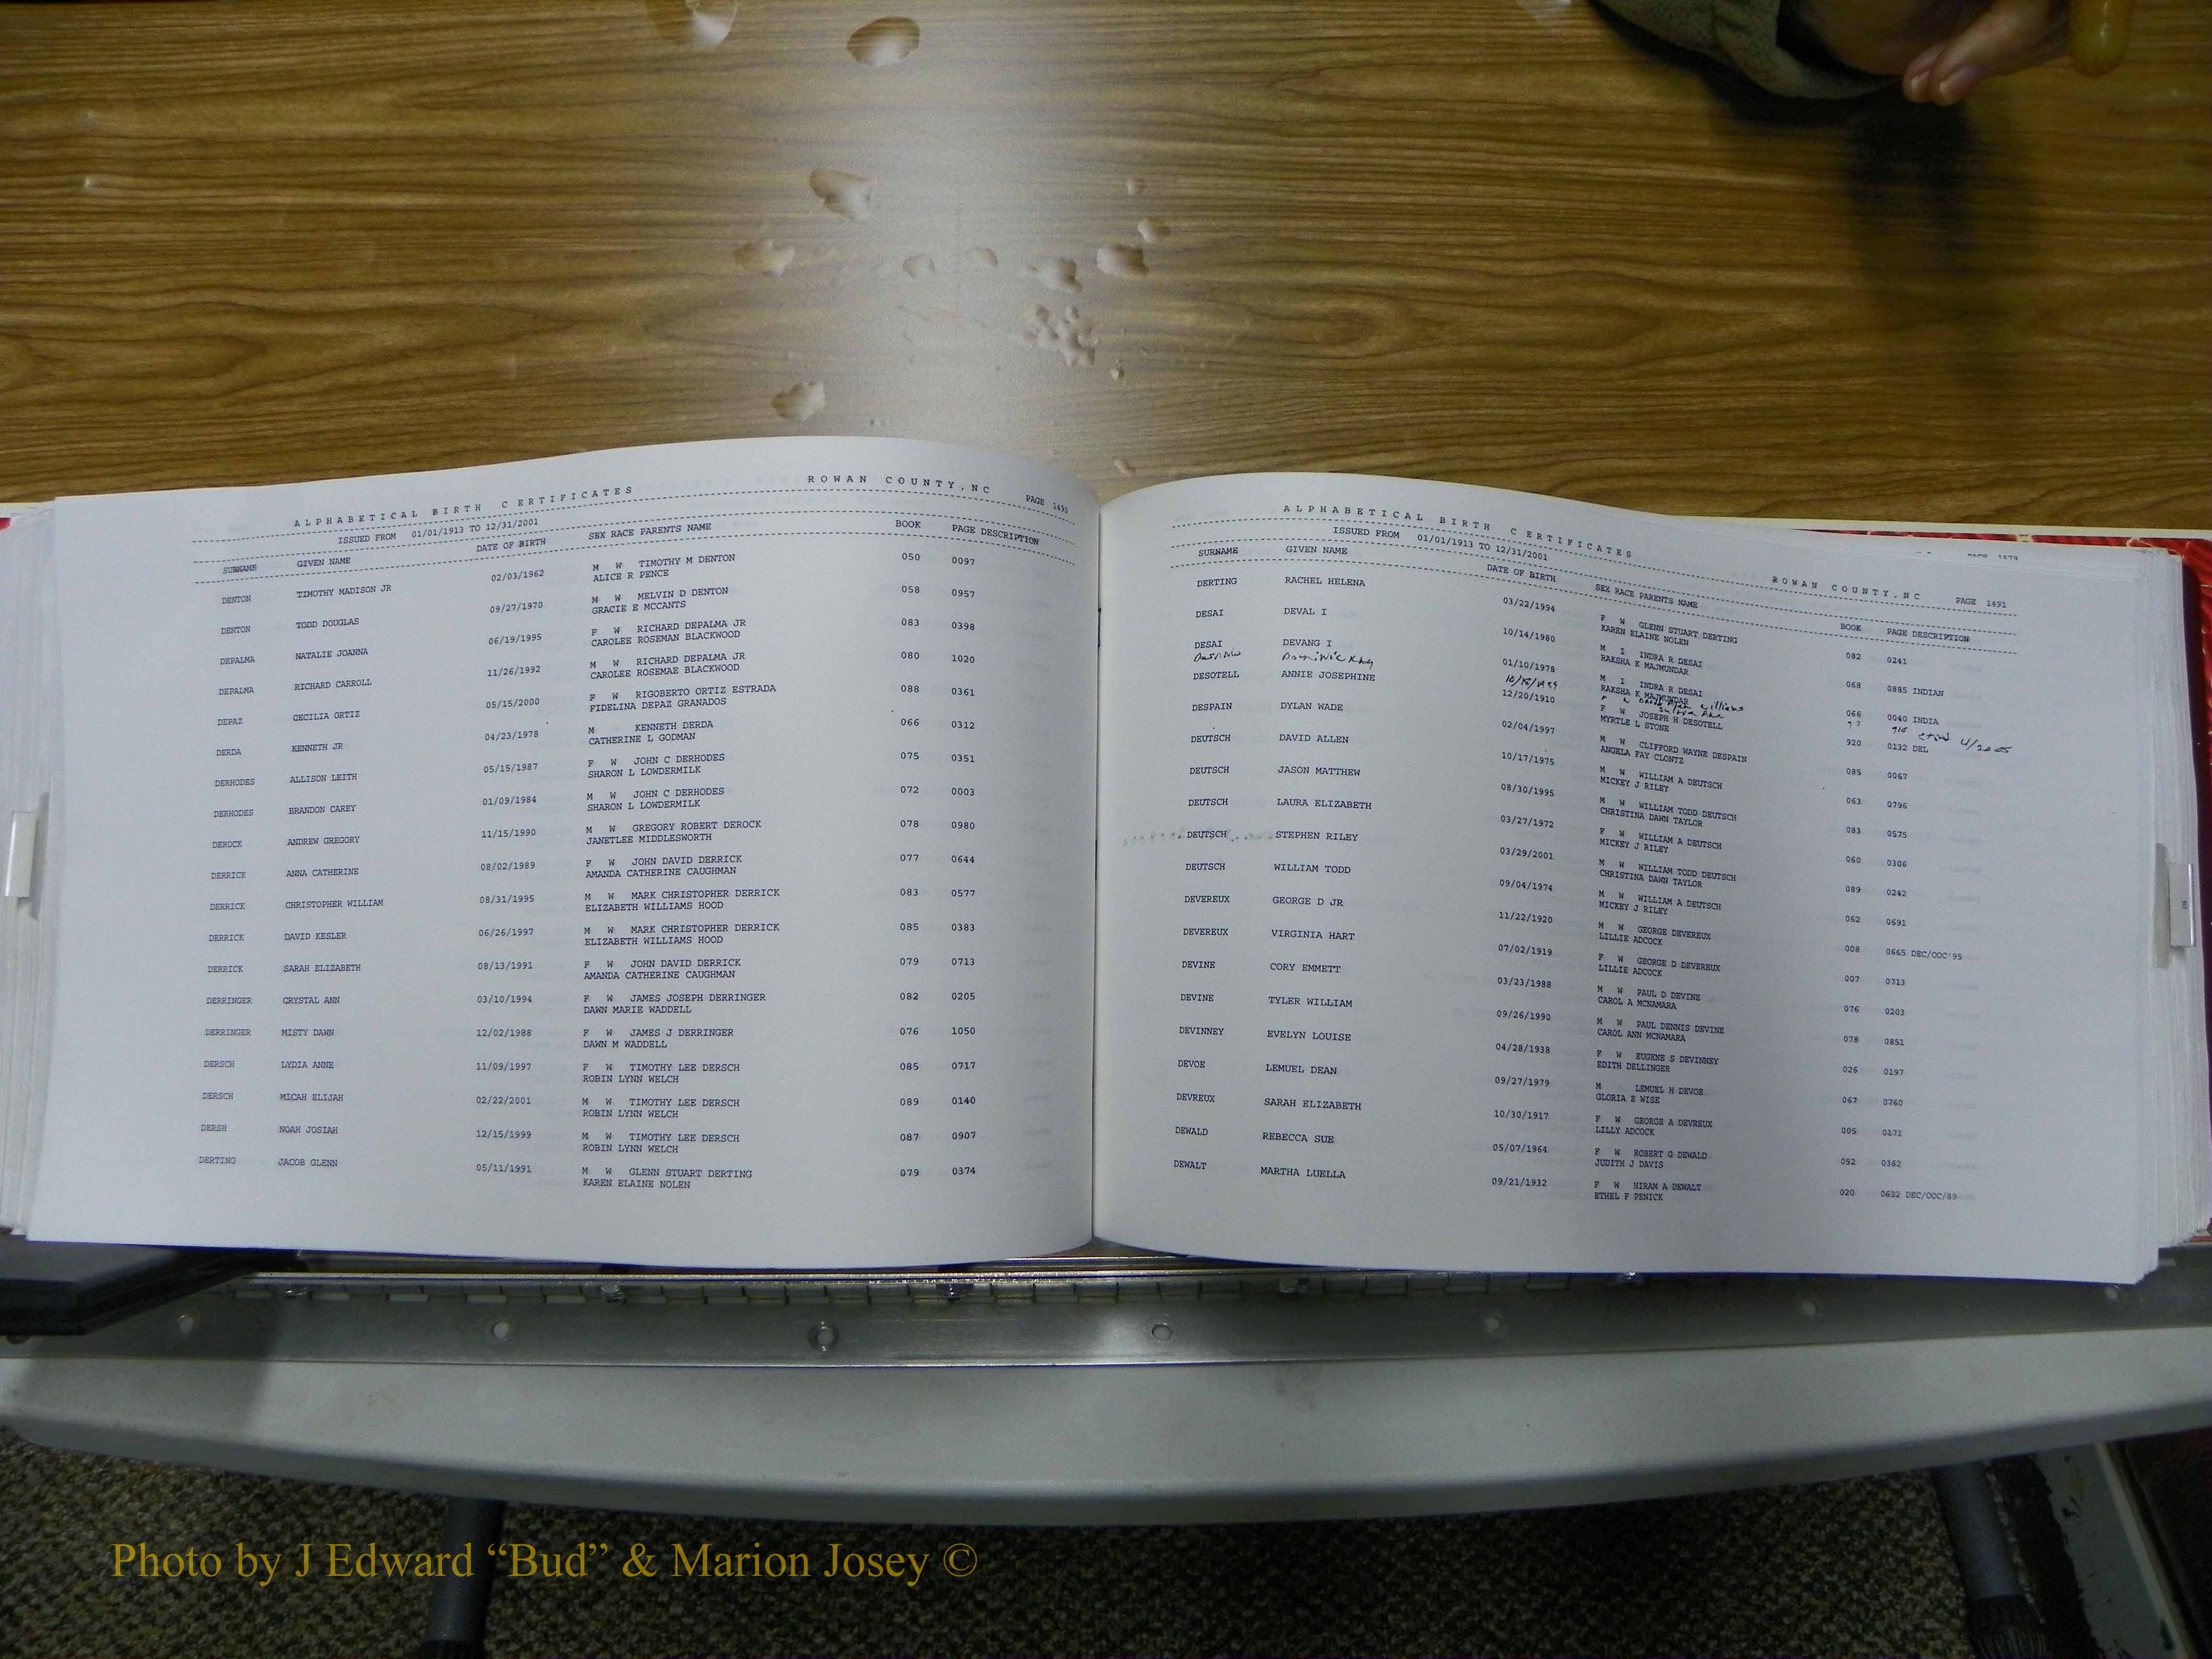 ALPHABETICAL BIRTH CERTIFICATES ROWAN COUNTY, NC PAGE 1490
ISSUED FROM 01/01/1913 TO 12/31/2001
SURNAME GIVEN NAME DATE OF BIRTH SEX RACE PARENTS NAME BOOK PAGE DESCRIPTION
DENTON TIMOTHY MADISON JR 02/03/1962 M W TIMOTHY M DENTON 050 0097
ALICE R PENCE
DENTON TODD DOUGLAS 09/27/1970 M W MELVIN D DENTON 058 0957
GRACIE E MCCANTS
DEPALMA NATALIE JOANNA 06/19/1995 F W RICHARD DEPALMA JR 083 0398
CAROLEE ROSEMAN BLACKWOOD
DEPALMA RICHARD CARROLL 11/26/1992 M W RICHARD DEPALMA JR 080 1020
CAROLEE ROSEMAE BLACKWOOD
DEPAZ CECILIA ORTIZ 05/15/2000 F W RIGOBERTO ORTIZ ESTRADA 088 0361
FIDELINA DEPAZ GRANADOS
DERDA KENNETH JR 04/23/1978 M KENNETH DERDA 066 0312
CATHERINE L GODMAN
DERHODES ALLISON LEITH 05/15/1987 F W JOHN C DERHODES 075 0351
SHARON L LOWDERMILK
DERHODES BRANDON CAREY 01/09/1984 M W JOHN C DERHODES 072 0003
SHARON L LOWDERMILK
DEROCK ANDREW GREGORY 11/15/1990 M W GREGORY ROBERT DEROCK 078 0980
JANETLEE MIDDLESWORTH
DERRICK ANNA CATHERINE 08/02/1989 F W JOHN DAVID DERRICK 077 0644
AMANDA CATHERINE CAUGHMAN
DERRICK CHRISTOPHER WILLIAM 08/31/1995 M W MARK CHRISTOPHER DERRICK 083 0577
ELIZABETH WILLIAMS HOOD
DERRICK DAVID KESLER 06/26/1997 M W MARK CHRISTOPHER DERRICK 085 0383
ELIZABETH WILLIAMS HOOD
DERRICK SARAH ELIZABETH 08/13/1991 F W JOHN DAVID DERRICK 079 0713
AMANDA CATHERINE CAUGHMAN
DERRINGER CRYSTAL ANN 03/10/1994 F W JAMES JOSEPH DERRINGER 082 0205
DAWN MARIE WADDELL
DERRINGER MISTY DAWN 12/02/1988 F W JAMES J DERRINGER 076 1050
DAWN M WADDELL
DERSCH LYDIA ANNE 11/09/1997 F W TIMOTHY LEE DERSCH 085 0717
ROBIN LYNN WELCH
DERSCH MICAH ELIJAH 02/22/2001 M W TIMOTHY LEE DERSCH 089 0140
ROBIN LYNN WELCH
DERSH NOAH JOSIAH 12/15/1999 M W TIMOTHY LEE DERSCH 087 0907
ROBIN LYNN WELCH
DERTING JACOB GLENN 05/11/1991 M W GLENN STUART DERTING 079 0374
KAREN ELAINE NOLEN
PAGE 1579
ALPHABETICAL BIRTH CERTIFICATES ROWAN COUNTY, NC PAGE 1491
ISSUED FROM 01/01/1913 TO 12/31/2001
SURNAME GIVEN NAME DATE OF BIRTH SEX RACE PARENTS NAME BOOK PAGE DESCRIPTION
DERTING RACHEL HELENA 03/22/1994 F W GLENN STUART DERTING 082 0241
KAREN ELAINE NOLEN
DESAI DEVAL I 10/14/1980 M I INDRA R DESAI 068 0885 INDIAN
RAKSHA K MAJMUNDAR
DESAI DEVANG I 01/10/1978 M I INDRA R DESAI 066 0040 INDIA
RAKSHA K MAJMUNDAR
Williams 4/2005
DESOTELL ANNIE JOSEPHINE 12/20/1910 F W JOSEPH H DESOTELL 920 0132 DEL
MYRTLE L STONE
DESPAIN DYLAN WADE 02/04/1997 M W CLIFFORD WAYNE DESPAIN 085 0067
ANGELA FAY CLONTZ
DEUTSCH DAVID ALLEN 10/17/1975 M W WILLIAM A DEUTSCH 063 0796
MICKEY J RILEY
DEUTSCH JASON MATTHEW 08/30/1995 M W WILLIAM TODD DEUTSCH 083 0575
CHRISTINA DAWN TAYLOR
DEUTSCH LAURA ELIZABETH 03/27/1972 F W WILLIAM A DEUTSCH 060 0306
MICKEY J RILEY
DEUTSCH STEPHEN RILEY 03/29/2001 M W WILLIAM TODD DEUTSCH 089 0242
CHRISTINA DAWN TAYLOR
DEUTSCH WILLIAM TODD 09/04/1974 M W WILLIAM A DEUTSCH 062 0691
MICKEY J RILEY
DEVEREUX GEORGE D JR 11/22/1920 M W GEORGE DEVEREUX 008 0665 DEC/OOC'95
LILLIE ADCOCK
DEVEREUX VIRGINIA HART 07/02/1919 F W GEORGE D DEVEREUX 007 0713
LILLIE ADCOCK
DEVINE CORY EMMETT 03/23/1988 M W PAUL D DEVINE 076 0203
CAROL A MCNAMARA
DEVINE TYLER WILLIAM 09/26/1990 M W PAUL DENNIS DEVINE 078 0851
CAROL ANN MCNAMARA
DEVINNEY EVELYN LOUISE 04/28/1938 F W EUGENE S DEVINNEY 026 0197
EDITH DELLINGER
DEVOE LEMUEL DEAN 09/27/1979 M LEMUEL H DEVOE 067 0760
GLORIA E WISE
DEVREUX SARAH ELIZABETH 10/30/1917 F W GEORGE A DEVREUX 005 0171
LILLY ADCOCK
DEWALD REBECCA SUE 05/07/1964 F W ROBERT G DEWALD 052 0362
JUDITH J DAVIS
DEWALT MARTHA LUELLA 09/21/1932 F W HIRAM A DEWALT 020 0612 DEC/OOC/89
ETHEL F PENICK
Photo by J Edward “Bud” & Marion Josey ©